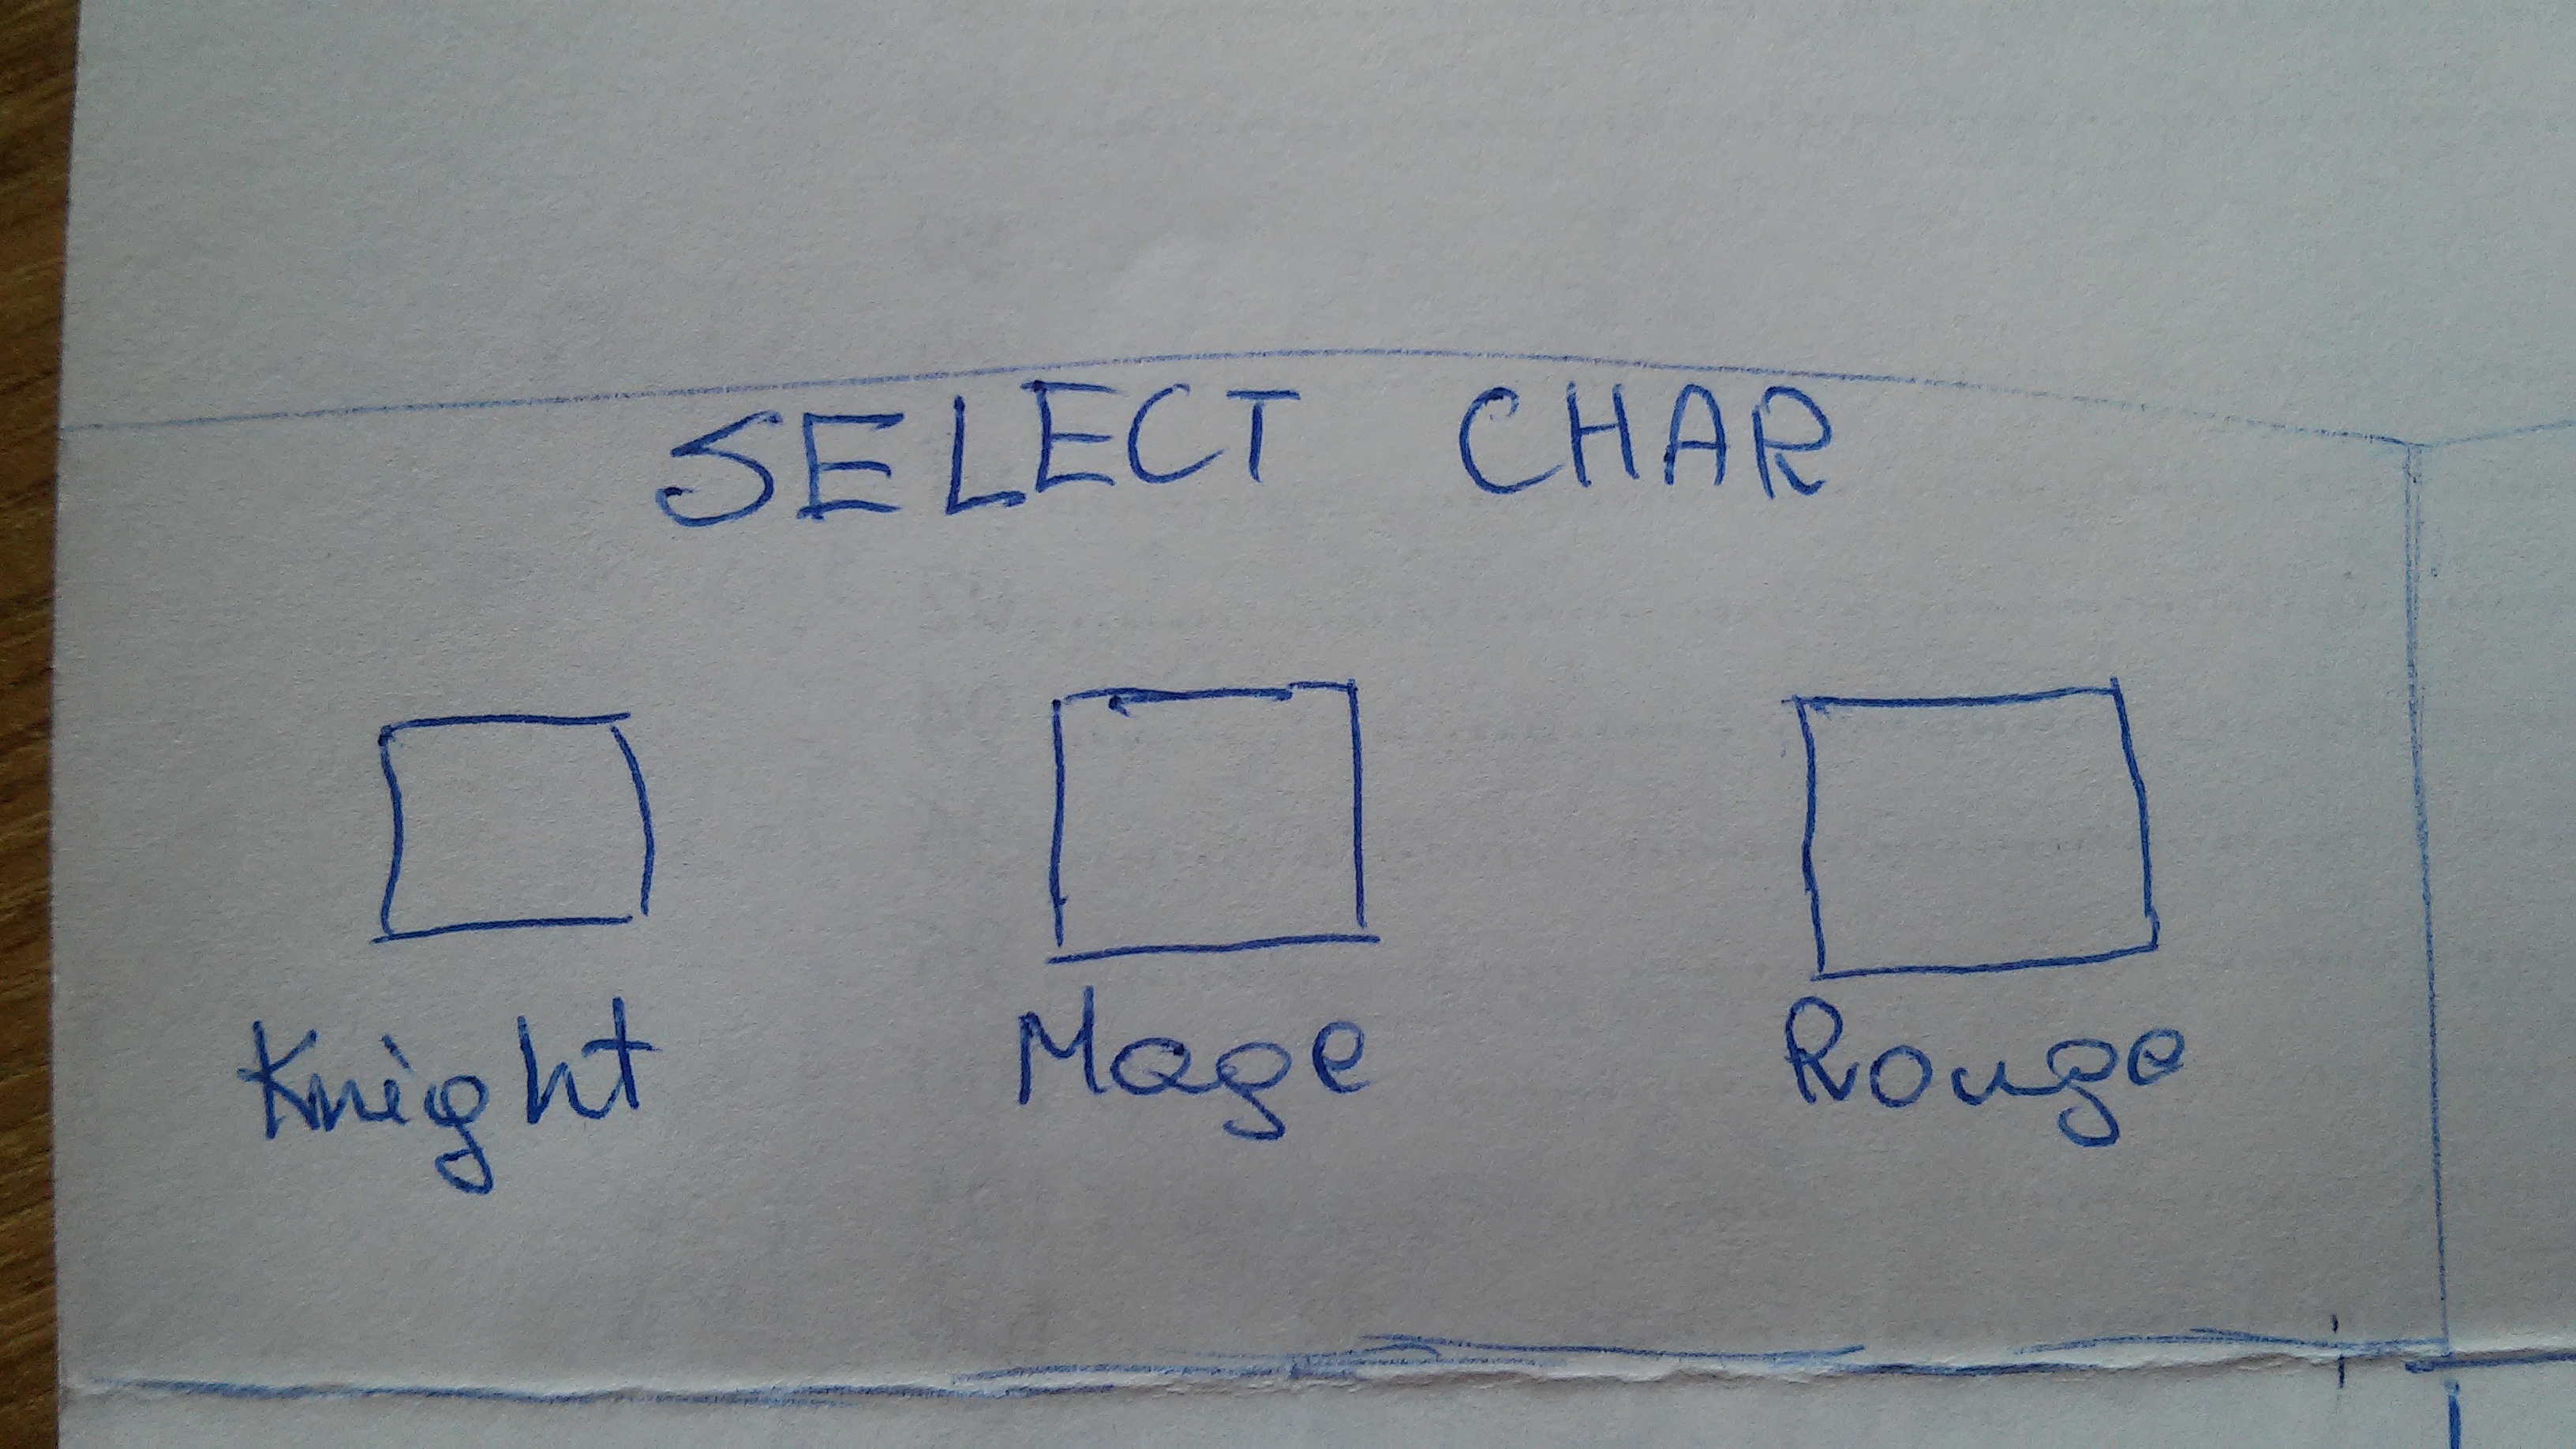 SELECT CHAR
Knight Mage Rouge